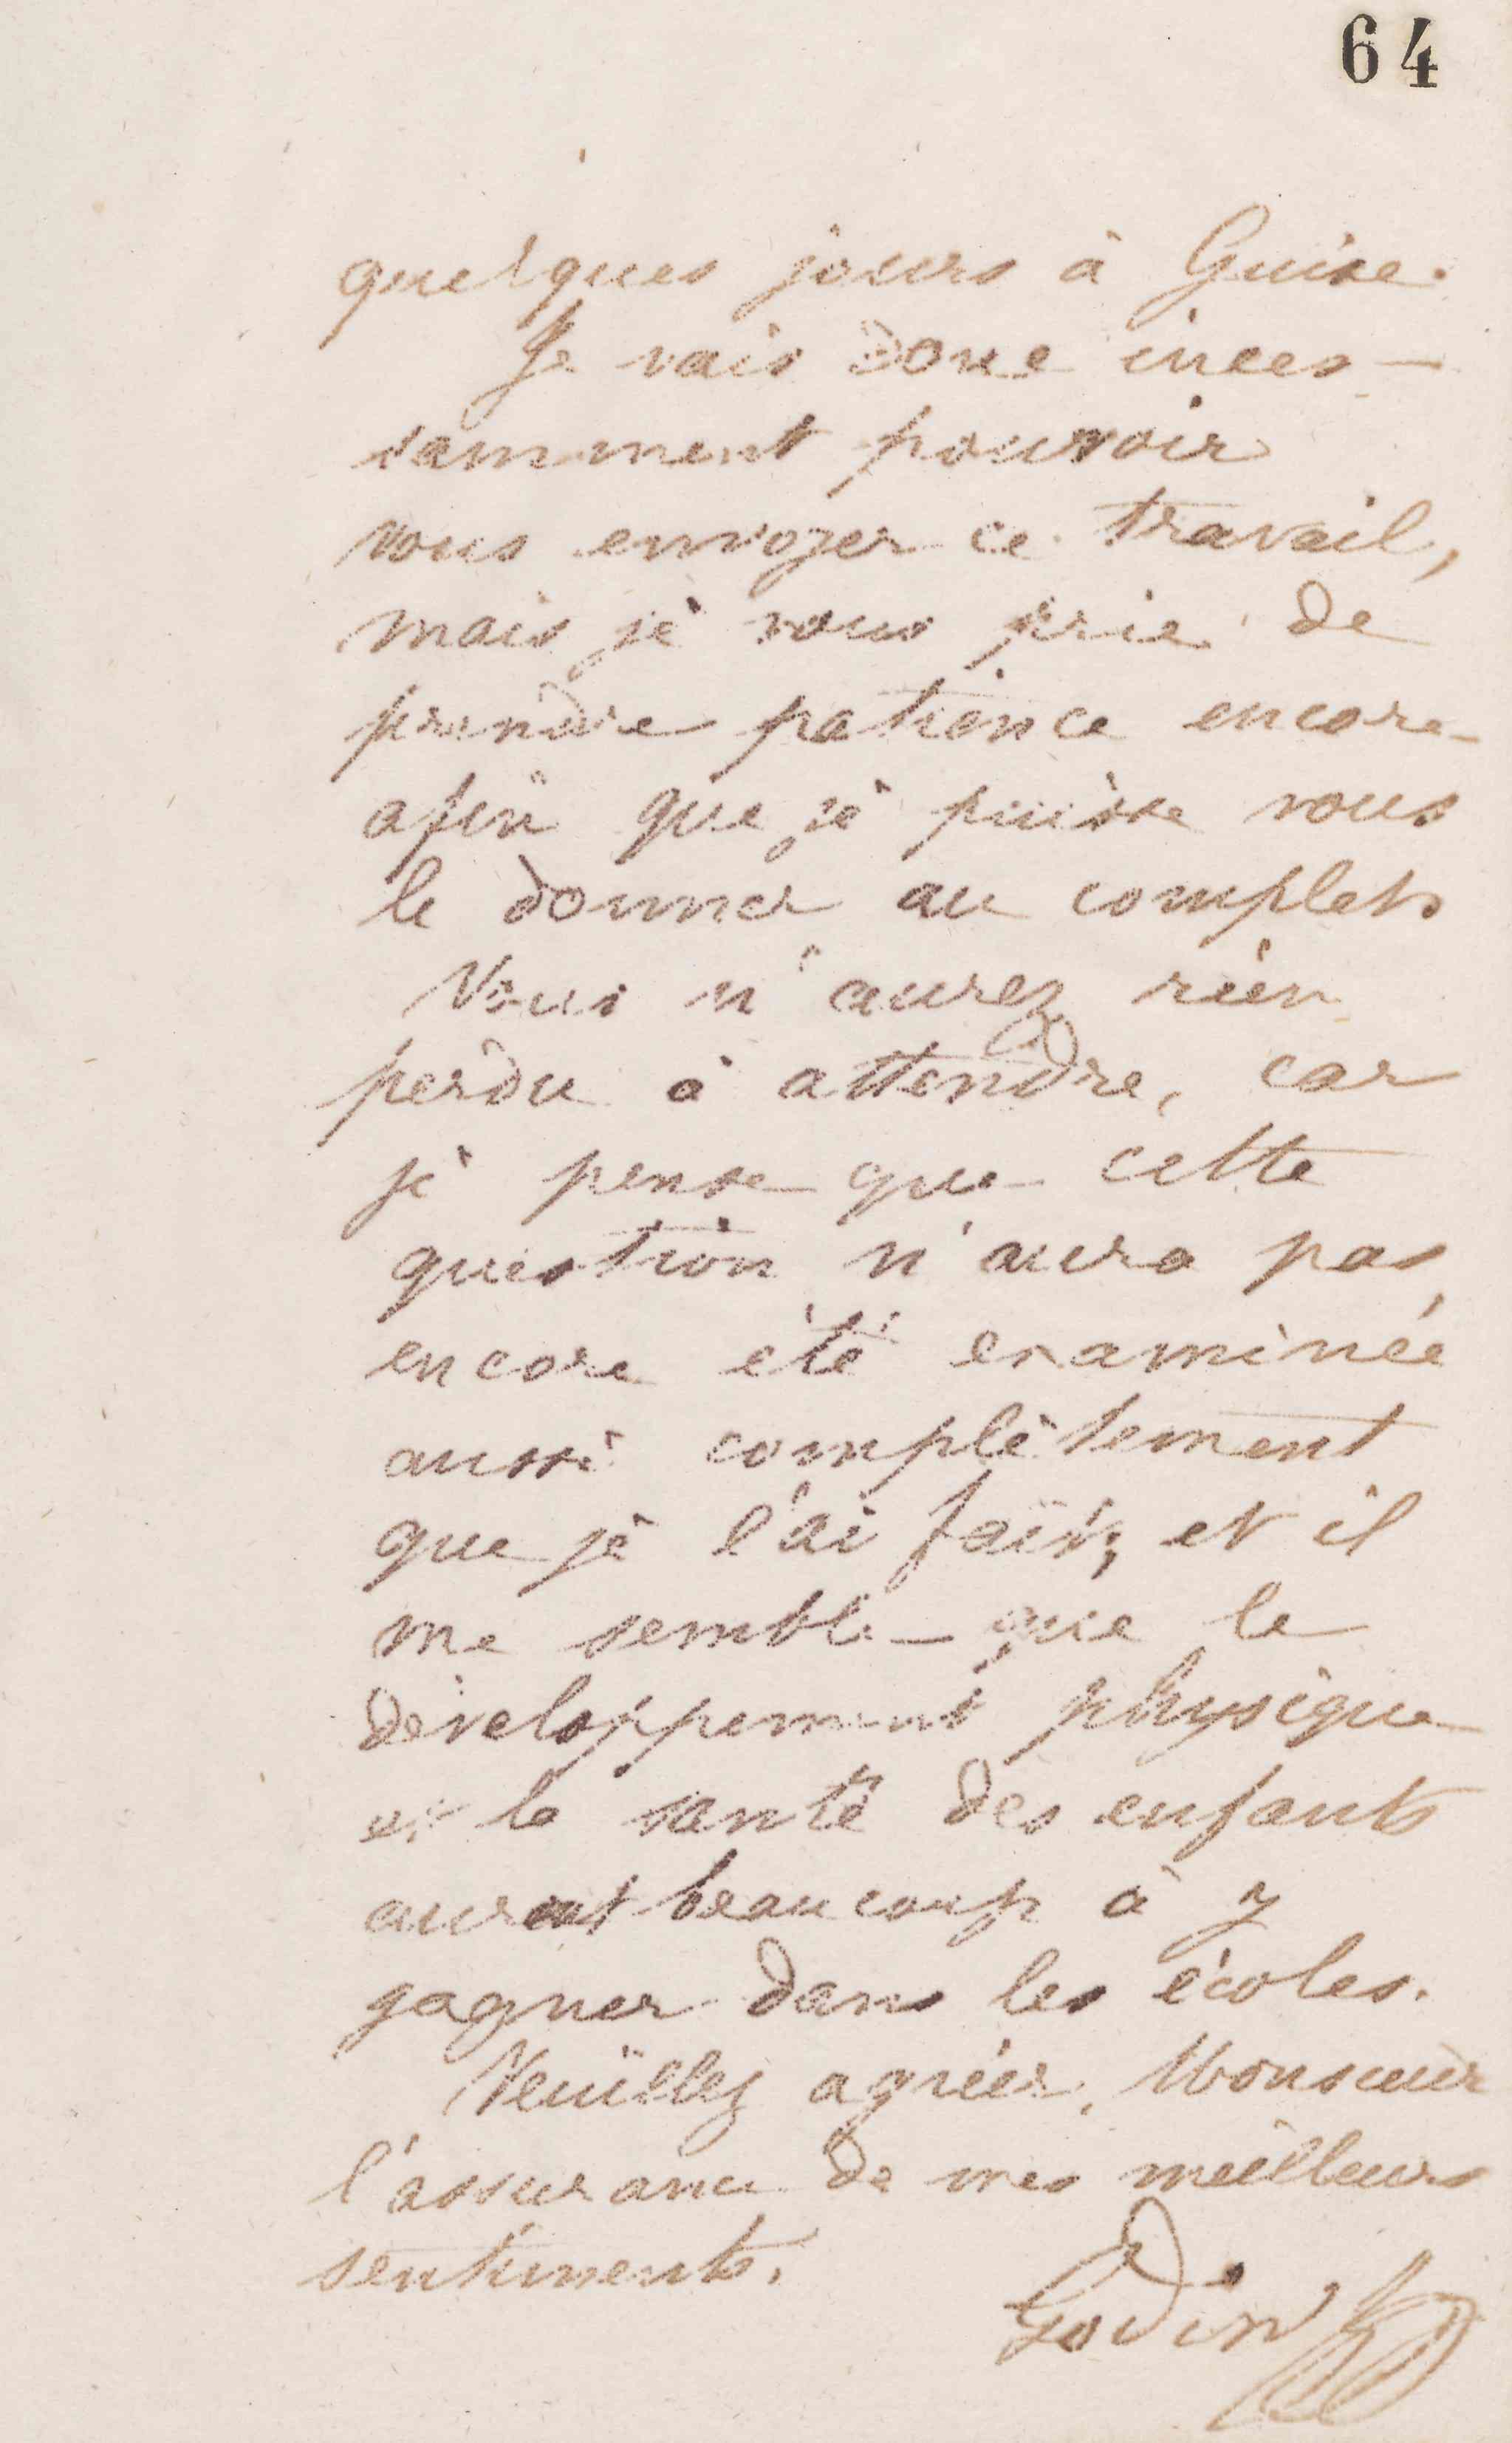 64
quelques jours à Guise.
Je vais donc inces-
samment pouvoir
vous envoyer ce travail,
mais je vous prie de
prendre patience encore
afin que je puisse vous
le donner au complet.
Vous n'aurez rien
perdu à attendre, car
je pense que cette
question n'aura pas
encore été examinée
aussi complètement
que je l'ai fait; et il
me semble que le
développement physique
et la santé des enfants
auront beaucoup à y
gagner dans les écoles.
Veuillez agréer, Monsieur
l'assurance de mes meilleurs
sentiments.
Godin